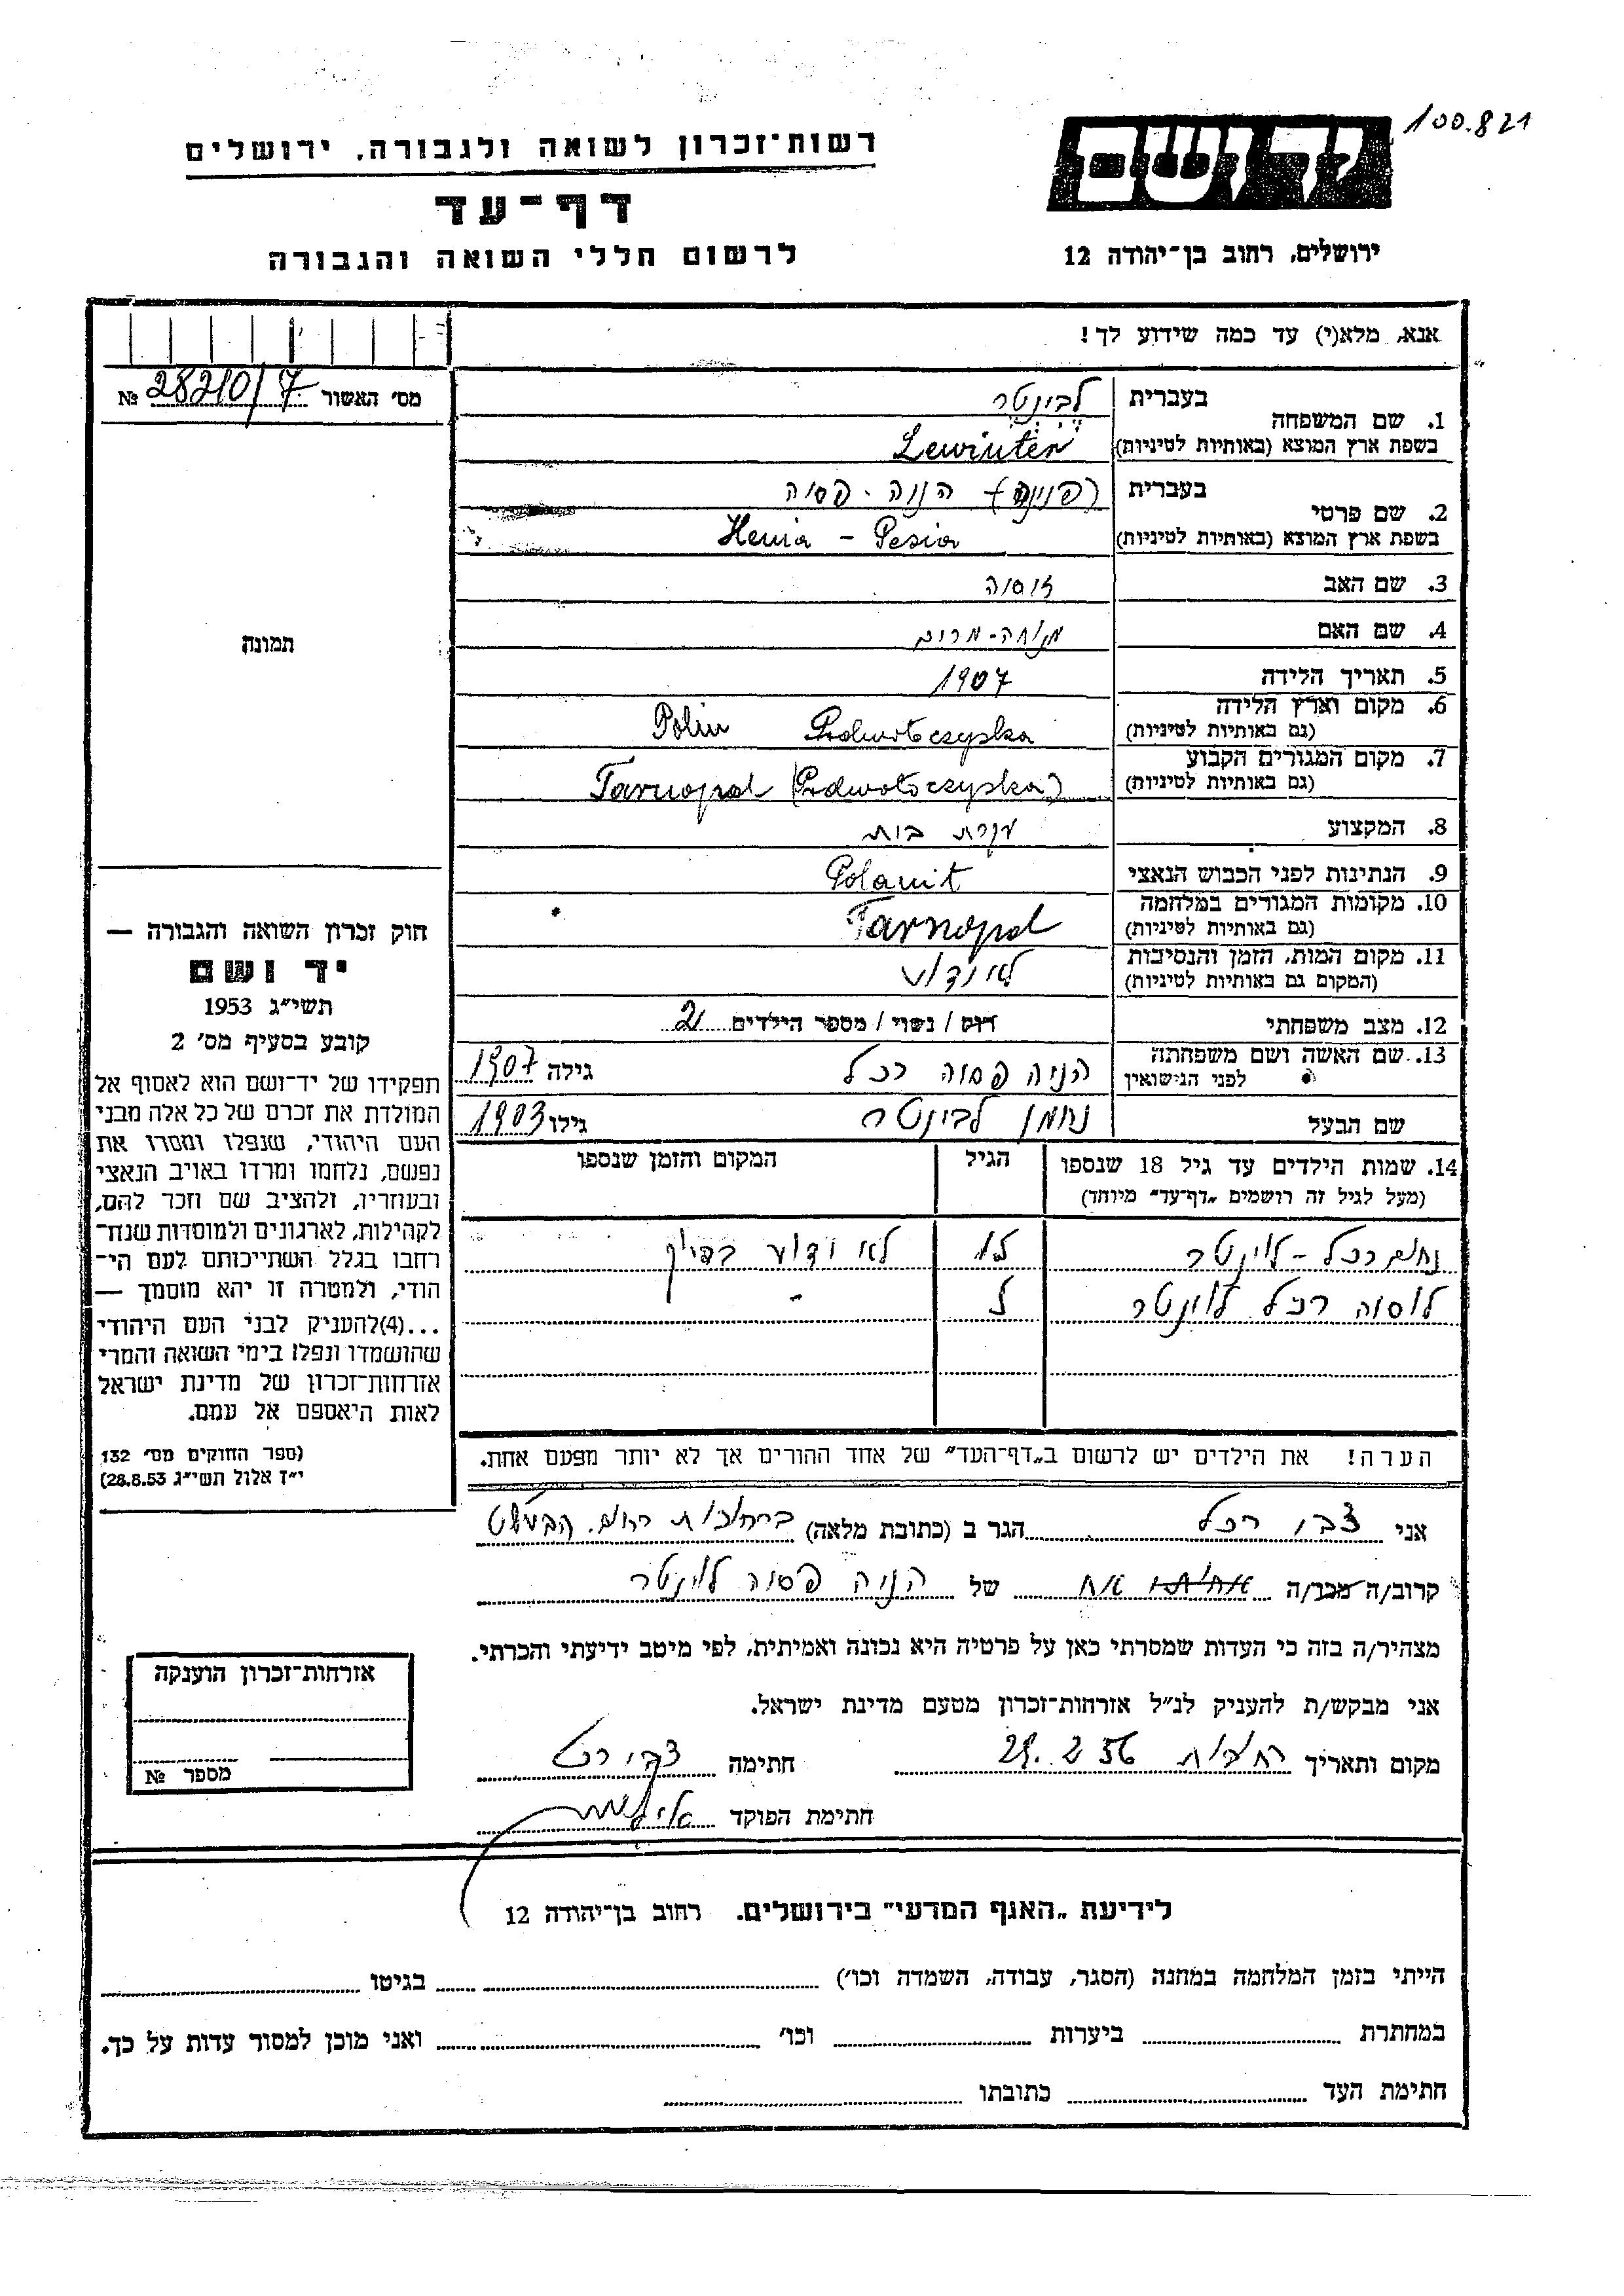 100.821
יד ושם
רשות־זכרון לשואה ולגבורה, ירושלים
דף־עד
לרשום חללי השואה והגבורה
ירושלים, רחוב בן־יהודה 12
אנא, מלא(י) עד כמה שידוע לך!
מס' האשור 28210/7 №
תמונה
1. שם המשפחה
בעברית לבינטר
בשפת ארץ המוצא (באותיות לטיניות) Lewinter
2. שם פרטי
בעברית הניה - פסיה
בשפת ארץ המוצא (באותיות לטיניות) Henia - Pesia
3. שם האב
4. שם האם
5. תאריך הלידה 1907
6. מקום וארץ הלידה
(גם באותיות לטיניות) Podwołoczyska Polin
7. מקום המגורים הקבוע
(גם באותיות לטיניות) Tarnopol (Podwołoczyska)
8. המקצוע עקרת בית
9. הנתינות לפני הכבוש הנאצי Polanit
10. מקומות המגורים במלחמה
(גם באותיות לטיניות) Tarnopol
11. מקום המות, הזמן והנסיבות
(המקום גם באותיות לטיניות) לא ידוע
12. מצב משפחתי רוק / נשוי / מספר הילדים 2
13. שם האשה ושם משפחתה
לפני הנישואין הניה פסיה רכל גילה 1907
שם הבעל נחמן לבינטר גילו 1903
14. שמות הילדים עד גיל 18 שנספו
(מעל לגיל זה רושמים „דף־עד" מיוחד)
הגיל
המקום והזמן שנספו
רכל - לוינטר לא ידוע בדיוק
רכל לוינטר -
הערה! את הילדים יש לרשום ב„דף־העד" של אחד ההורים אך לא יותר מפעם אחת.
חוק זכרון השואה והגבורה —
יד ושם
תשי"ג 1953
קובע בסעיף מס' 2
תפקידו של יד־ושם הוא לאסוף אל
המולדת את זכרם של כל אלה מבני
העם היהודי, שנפלו ומסרו את
נפשם, נלחמו ומרדו באויב הנאצי
ובעוזריו, ולהציב שם וזכר להם,
לקהילות, לארגונים ולמוסדות שנח־
רבו בגלל השתייכותם לעם הי־
הודי, ולמטרה זו יהא מוסמך —
...(4)להעניק לבני העם היהודי
שהושמדו ונפלו בימי השואה והמרי
אזרחות־זכרון של מדינת ישראל
לאות היאספם אל עמם.
(ספר החוקים מס' 132
י"ז אלול תשי"ג 28.8.53)
אני צבי רכל הגר ב (כתובת מלאה) ברחובות
קרוב/ה מכר/ה אח של הניה פסיה לוינטר
מצהיר/ה בזה כי העדות שמסרתי כאן על פרטיה היא נכונה ואמיתית, לפי מיטב ידיעתי והכרתי.
אני מבקש/ת להעניק לנ"ל אזרחות־זכרון מטעם מדינת ישראל.
מקום ותאריך רחובות 29.2.56 חתימה צבי רכל
חתימת הפוקד
אזרחות־זכרון הוענקה
מספר №
לידיעת „האגף המדעי" בירושלים, רחוב בן־יהודה 12
הייתי בזמן המלחמה במחנה (הסגר, עבודה, השמדה וכו') בגיטו
במחתרת ביערות וכו' ואני מוכן למסור עדות על כך.
חתימת העד כתובתו